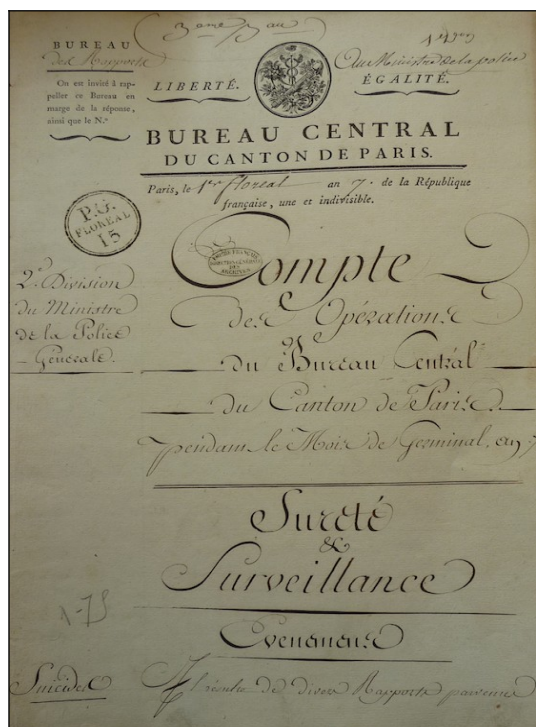 3eme Bau
BUREAU
des Rapports
On est invité à rap-
peller ce Bureau en
marge de la réponse,
ainsi que le N.º
LIBERTÉ.
Au Ministre de la police
ÉGALITÉ.
BUREAU CENTRAL
DU CANTON DE PARIS.
Paris, le 1er floreal an 7. de la République
française, une et indivisible.
P.G.
FLOREAL
15
2e. Division
du Ministre
de la Police
Générale.
Compte
des Opérations
du Bureau Central
du Canton de Paris
pendant le Mois de Germinal, an 7
Sureté
&
Surveillance
Evenemens
Suicides
Il résulte de divers Rapports parvenus